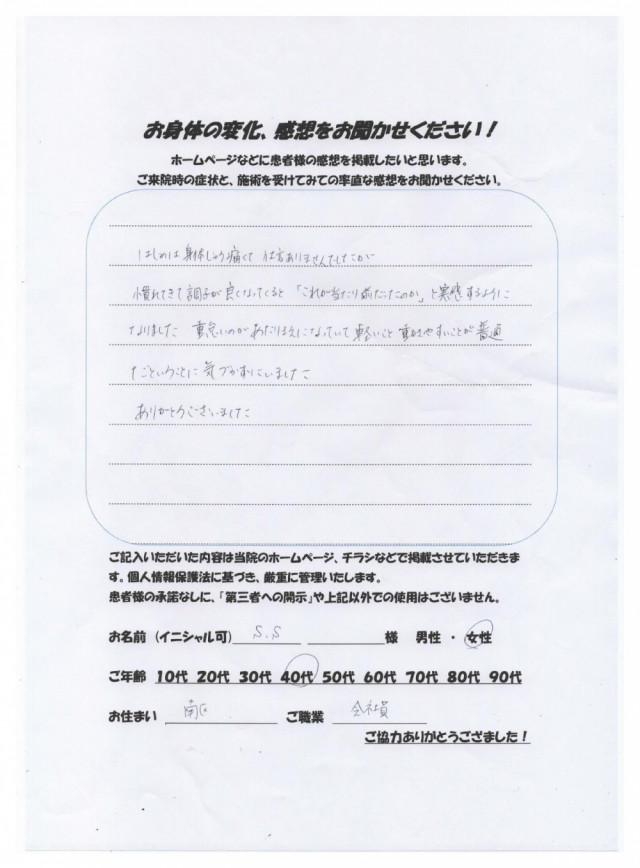 お身体の変化、感想をお聞かせください！
ホームページなどに患者様の感想を掲載したいと思います。
ご来院時の症状と、施術を受けてみての率直な感想をお聞かせください。
はじめは身体じゅう痛くて 仕方ありませんでしたが
慣れてきて調子が良くなってくると 「これが当たり前だったのか」と実感するように
なりました 重怠いのがあたりまえになっていて 軽いこと 動かせやすいことが普通
だということに気づかずにいました
ありがとうございました
ご記入いただいた内容は当院のホームページ、チラシなどで掲載させていただきま
す。個人情報保護法に基づき、厳重に管理いたします。
患者様の承諾なしに、「第三者への開示」や上記以外での使用はございません。
お名前（イニシャル可） S.S 様 男性 ・ 女性
ご年齢 10代 20代 30代 40代 50代 60代 70代 80代 90代
お住まい 南区 ご職業 会社員
ご協力ありがとうござました！